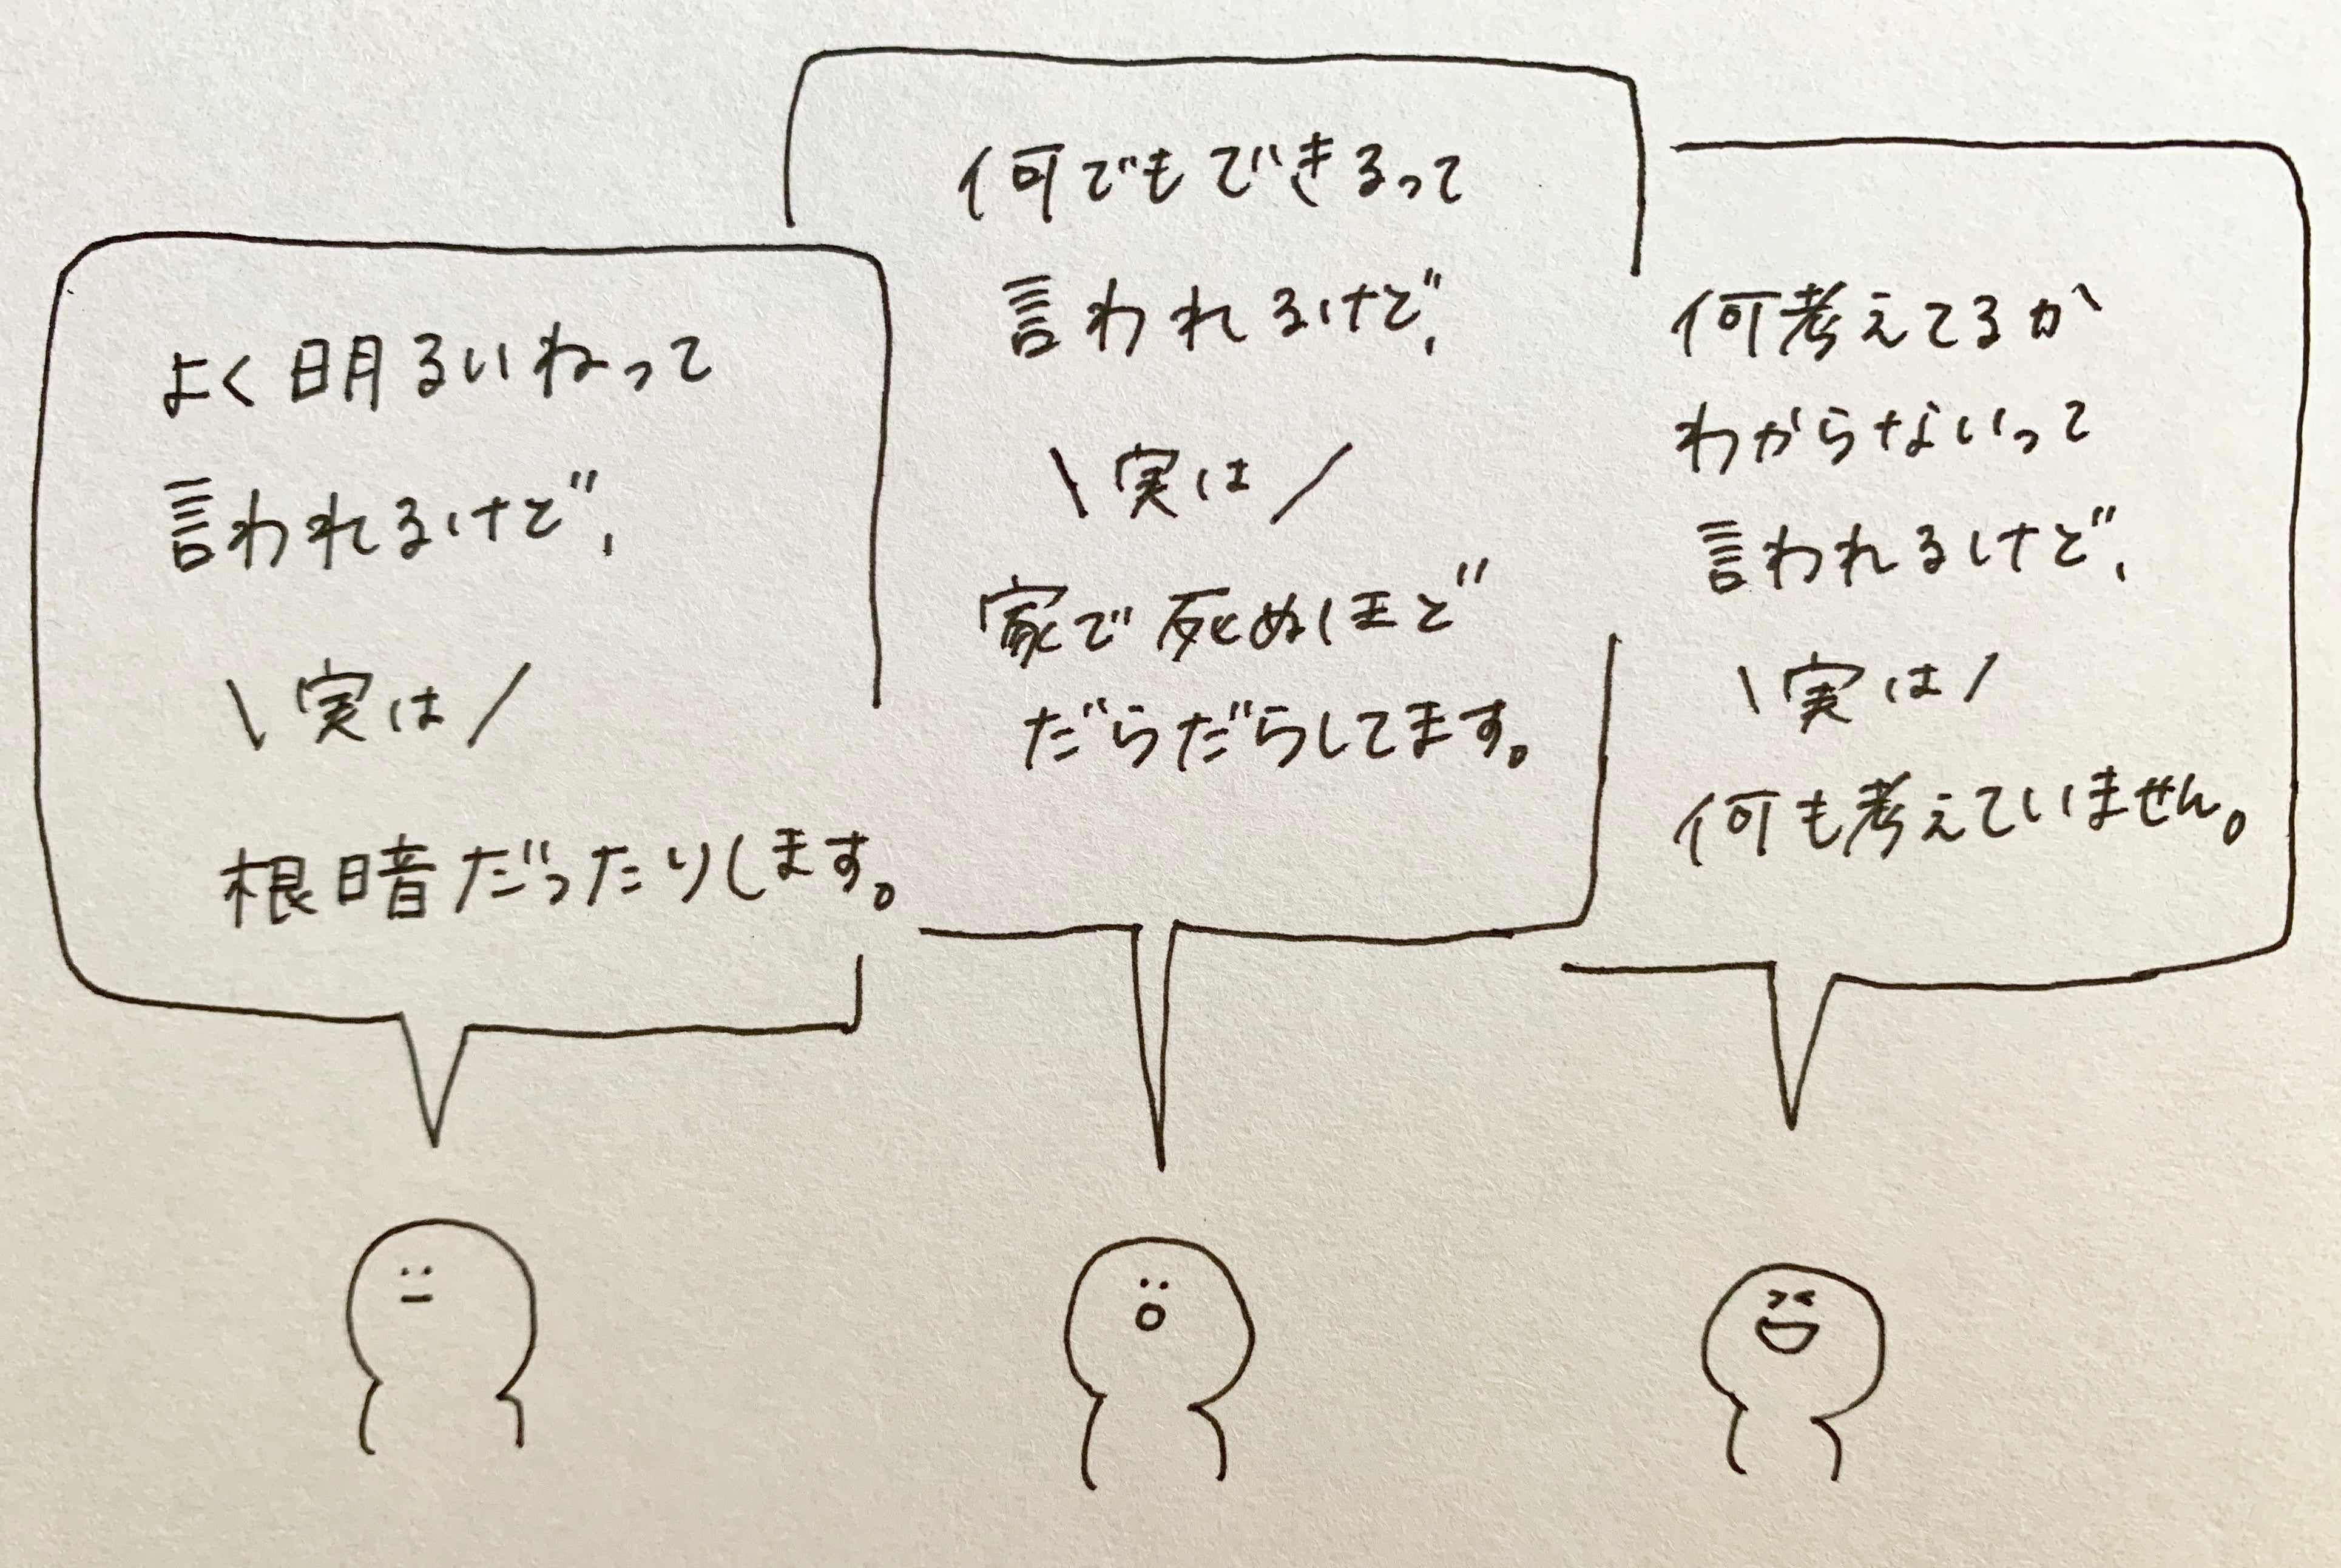 よく明るいねって
言われるけど、
\実は/
根暗だったりします。
何でもできるって
言われるけど、
\実は/
家で死ぬほど
だらだらしてます。
何考えてるか
わからないって
言われるけど、
\実は/
何も考えていません。